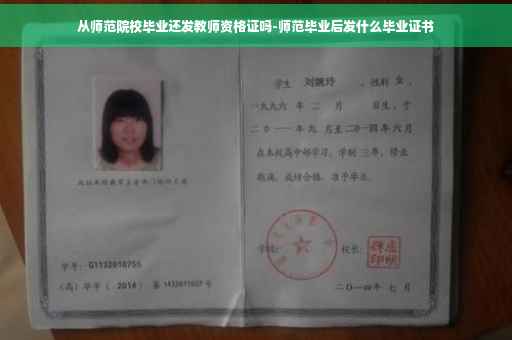 从师范院校毕业还发教师资格证吗-师范毕业后发什么毕业证书
学生 刘婉玲 ，性别 女 ，
一九九六 年 二 月 日生，于
二0一一 年 九 月至 二0一四 年 六 月
在本校高中部学习，学制 三 年，修业
期满，成绩合格，准予毕业。
学号： G1132010755
（高）毕字（ 2014 ）第 1432011027 号
学校：
校长：
二〇一四年 七 月